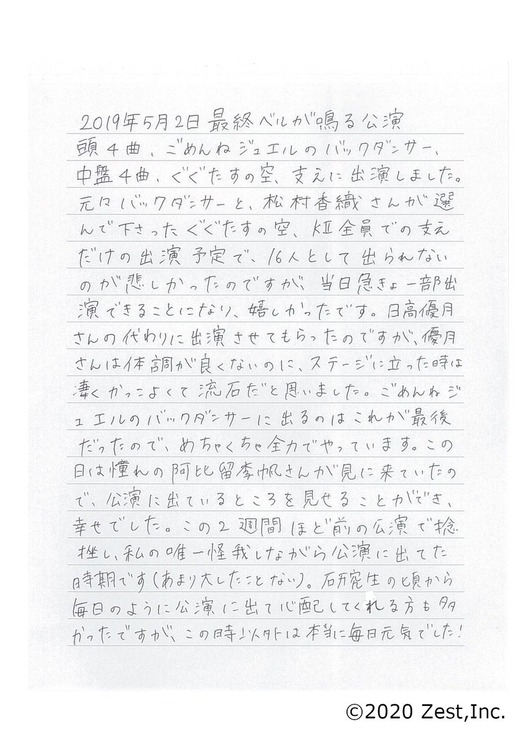 2019年5月2日最終ベルが鳴る公演
頭4曲、ごめんねジュエルのバックダンサー、
中盤4曲、ぐぐたすの空、支えに出演しました。
元々バックダンサーと、松村香織さんが選
んで下さったぐぐたすの空、KⅡ全員での支え
だけの出演予定で、16人として出られない
のが悲しかったのですが、当日急きょ一部出
演できることになり、嬉しかったです。日高優月
さんの代わりに出演させてもらったのですが、優月
さんは体調が良くないのに、ステージに立った時は
凄くかっこよくて流石だと思いました。ごめんねジ
ュエルのバックダンサーに出るのはこれが最後
だったので、めちゃくちゃ全力でやっています。この
日は憧れの阿比留李帆さんが見に来ていたの
で、公演に出ているところを見せることができ、
幸せでした。この2週間ほど前の公演で捻
挫し、私の唯一怪我しながら公演に出てた
時期です(あまり大したことない)。研究生の頃から
毎日のように公演に出て心配してくれる方も多
かったですが、この時以外は本当に毎日元気でした!
©2020 Zest,Inc.